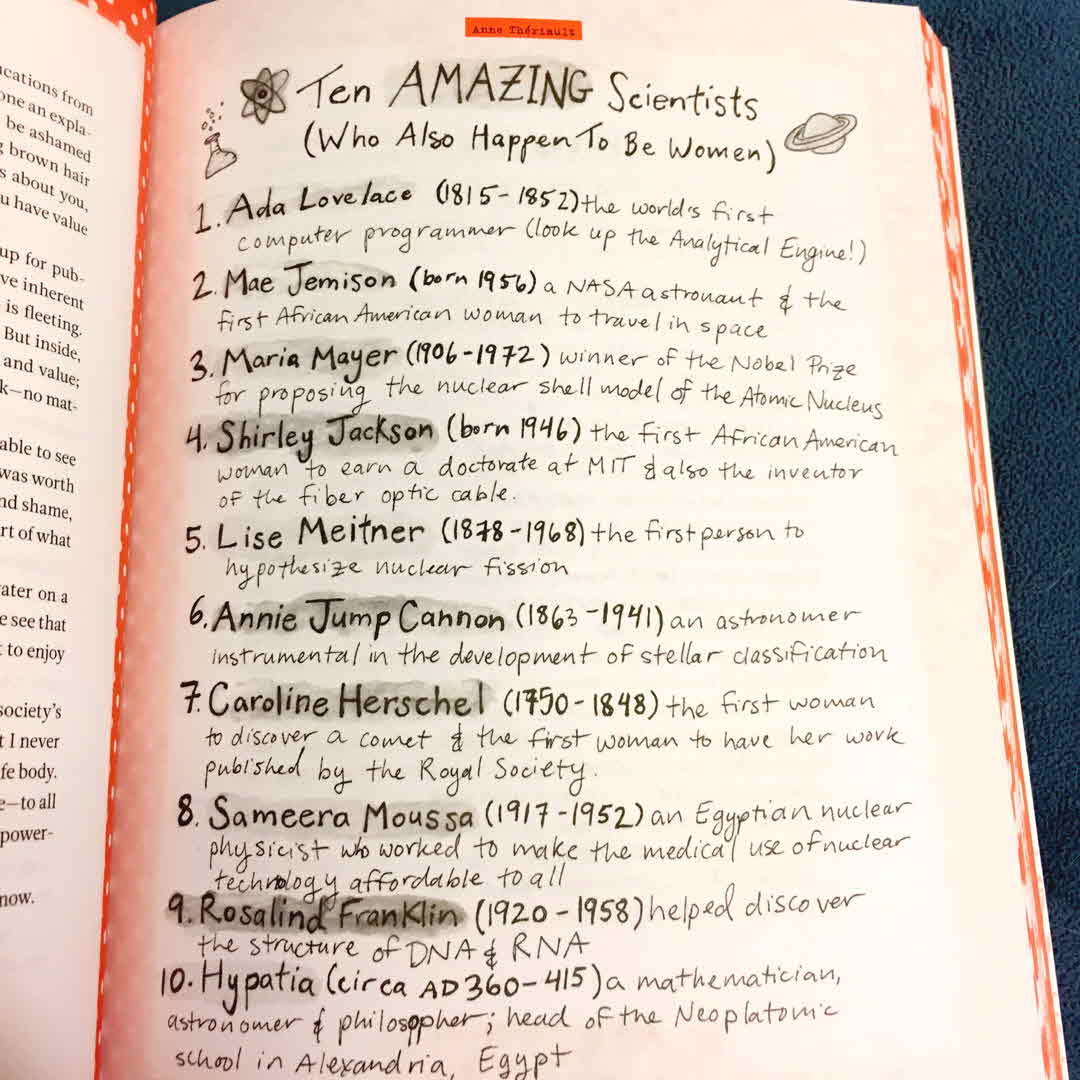 ications from
one an expla-
be ashamed
g brown hair
s about you,
u have value
up for pub-
ve inherent
is fleeting.
But inside,
and value;
k—no mat-
able to see
was worth
nd shame,
rt of what
ater on a
e see that
t to enjoy
society's
t I never
fe body.
e—to all
power-
now.
Anne Thériault
Ten AMAZING Scientists
(Who Also Happen To Be Women)
1. Ada Lovelace (1815-1852) the world's first
computer programmer (look up the Analytical Engine!)
2. Mae Jemison (born 1956) a NASA astronaut & the
first African American woman to travel in space
3. Maria Mayer (1906-1972) winner of the Nobel Prize
for proposing the nuclear shell model of the Atomic Nucleus
4. Shirley Jackson (born 1946) the first African American
woman to earn a doctorate at MIT & also the inventor
of the fiber optic cable.
5. Lise Meitner (1878-1968) the first person to
hypothesize nuclear fission
6. Annie Jump Cannon (1863-1941) an astronomer
instrumental in the development of stellar classification
7. Caroline Herschel (1750-1848) the first woman
to discover a comet & the first woman to have her work
published by the Royal Society.
8. Sameera Moussa (1917-1952) an Egyptian nuclear
physicist who worked to make the medical use of nuclear
technology affordable to all
9. Rosalind Franklin (1920-1958) helped discover
the structure of DNA & RNA
10. Hypatia (circa AD 360-415) a mathematician,
astronomer & philosopher; head of the Neoplatonic
school in Alexandria, Egypt